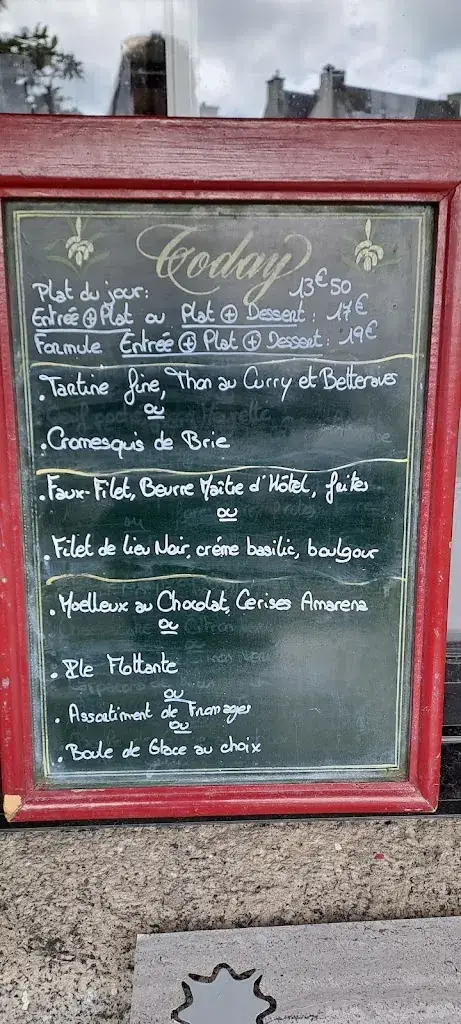 Today
Plat du jour: 13€50
Entrée ⊕ Plat ou Plat ⊕ Dessert : 17€
Formule Entrée ⊕ Plat ⊕ Dessert : 19€
. Tartine fine, Thon au Curry et Betteraves
ou
. Cromesquis de Brie
. Faux-Filet, Beurre Maître d'Hôtel, frites
ou
. Filet de lieu Noir, crème basilic, boulgour
. Moelleux au Chocolat, Cerises Amarena
ou
. Ile Flottante
ou
. Assortiment de Fromages
ou
. Boule de Glace au choix